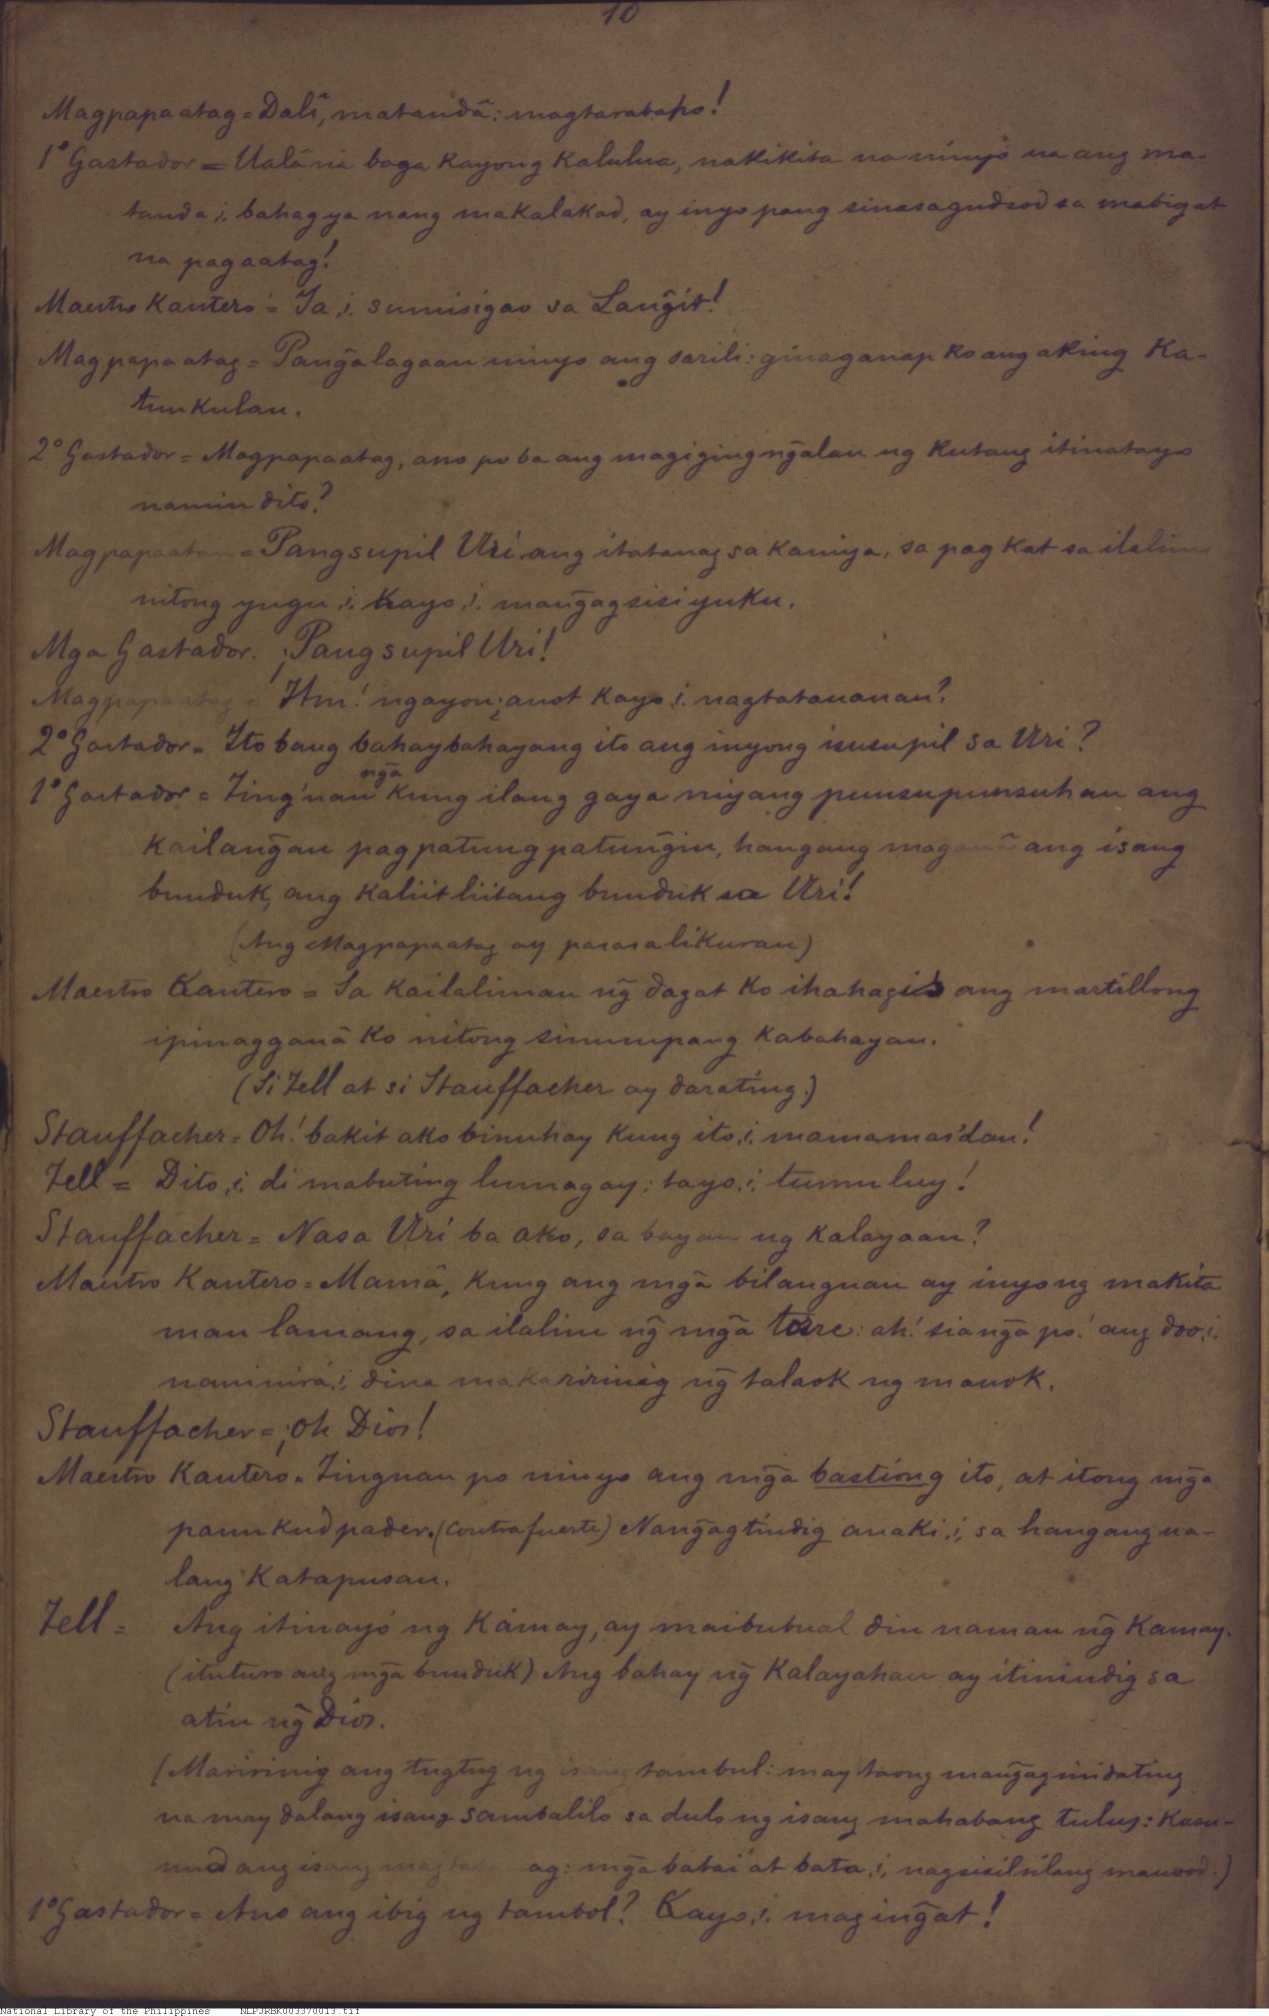 10
Magpapaatag = Dalî, matandâ: magtarabaho!
1º Gastador = Ualâ na baga kayong kalulua, nakikita na ninyo na ang ma-
tanda,i, bahagya nang makalakad, ay inyo pang sinasagudsod sa mabigat
na pagaatag!
Maestro Kantero = Ia,i, sumisigao sa Lang̃it!
Magpapaatag = Pang̃alagaan ninyo ang sarili: ginaganap ko ang aking Ka-
tunkulan.
2º Gastador = Magpapaatag, ano po ba ang magiging ng̃alan ng kutang itinatayo
namin dito?
Magpapaatag = Pangsupil Uri ang itatauag sa kaniya, sa pag kat sa ilalim
nitong yugu,i, kayo,i, mang̃agsisiyuku.
Mga Gastador. ¡Pangsupil Uri!
Magpapaatag = Hm! ngayon; ¿anot kayo,i, nagtatauanan?
2º Gastador = Ito bang bahaybahayang ito ang inyong isusupil sa Uri?
ng̃a
1º Gastador = Ting'nan kung ilang gaya niyang punsupunsuhan ang
kailang̃an pagpatung patung̃in, hangang mag ang isang
bunduk, ang kaliitliitang bunduk sa Uri!
(Ang Magpapaatag ay pasasalikuran)
Maestro Kantero = Sa kailaliman ng̃ dagat ko ihahagis ang martillong
ipinaggauâ ko nitong sinumpang kabahayan.
(Si Tell at si Stauffacher ay darating.)
Stauffacher = Oh! bakit ako binuhay kung ito,i, mamamas'dan!
Tell = Dito,i, di mabuting lumagay: tayo,i, tumuluy!
Stauffacher = Nasa Uri ba ako, sa bayan ng kalayaan?
Maestro Kantero = Mamâ, kung ang mg̃a bilanguan ay inyong makita
man lamang, sa ilalim ng̃ mg̃a torre: ah! siang̃a po! ang doo,i,
naninirá,i, dina makaririnig ng̃ talaok ng manok.
Stauffacher = ¡Oh Dios!
Maestro Kantero = Tingnan po ninyo ang mg̃a bastiong ito, at itong mg̃a
paunkud pader. (Contrafuerte) Nang̃agtindig anaki,i, sa hangang ua-
lang katapusan.
Tell = Ang itinayó ng Kámay, ay maibubual din naman ng̃ Kamay.
(ituturo ang mg̃a bunduk) Ang bahay ng̃ Kalayahan ay itinindig sa
atin ng̃ Dios.
(Maririnig ang tugtug ng isang tambul: may taong mang̃agsidating
na may dalang isang sambalilo sa dulo ng isang mahabang tulus: Kasu-
nud ang isang ag: mg̃a babai at bata,i, nagsisilsilang manood.)
1º Gastador = Ano ang ibig ng tambol? Kayo,i, maging̃at!
National Library of the Philippines NLPJRBK003370013.tif